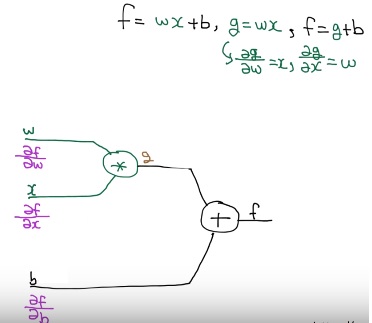 f = wx+b, g=wx, f=g+b
∂g/∂w=x, ∂g/∂x=w
w
∂f/∂w
*
g
x
∂f/∂x
+
f
b
∂f/∂b